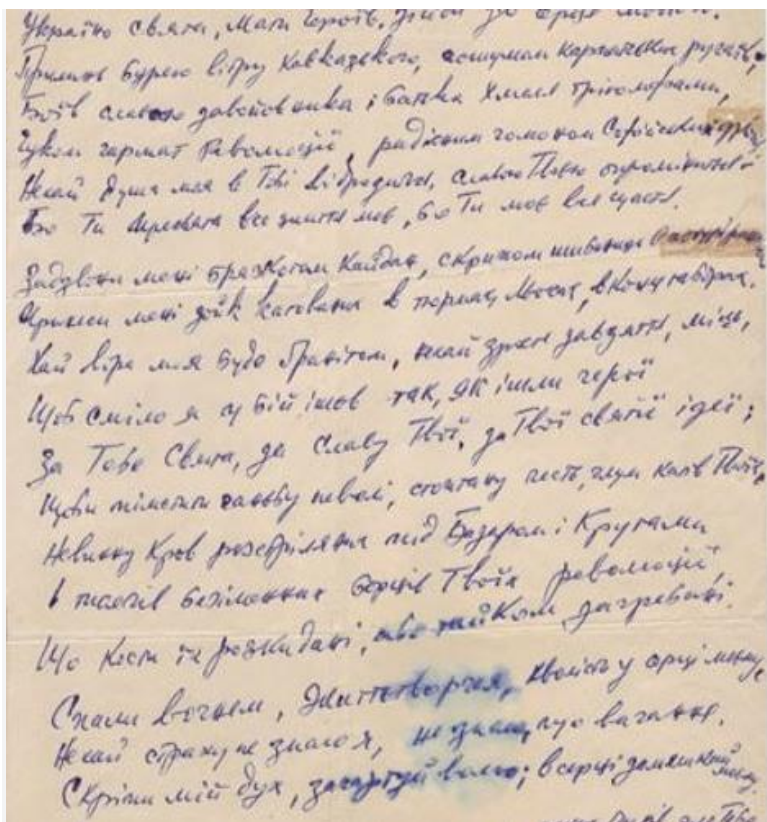 Україно свята, Мати Героїв, зійди до серця мойого.
Прилинь бурею вітру Кавказького, шумом карпатських ручаїв,
Боїв славного завойовника і батька Хмеля тріюмфами,
Гуком гармат Революції, радісним гомоном Софійських дзвонів
Нехай душа моя в Тобі відродиться, славою Твоєю опромінится
Бо Ти Пресвята все життя моє, бо Ти моє все щастя.
Задзвони мені брязкотом кайдан, скрипом шибениць
Принеси мені зойк катованих в тюрмах
Хай віра моя буде гранітом, нехай зросте завзяття, міць,
Щоб сміло я у бій ішов так, як ішли герої
За Тебе Свята, за Славу Твої, за Твої святії ідеї;
Щоби пімстити ганьбу неволі, стоптану честь, глум катів Твоїх,
Невинну Кров розстріляних під Базаром і Крутами
І тисячів безіменних борців Твоїх революцій,
Що кости їх розкидані, або тайком загребані.
Спали вогнем, життєтворчим, кволість у серці моєму,
Нехай страху не знаю я, не знаю, що вагання.
Скріпи мій дух, загартуй волю; в серці замешкай моєму.